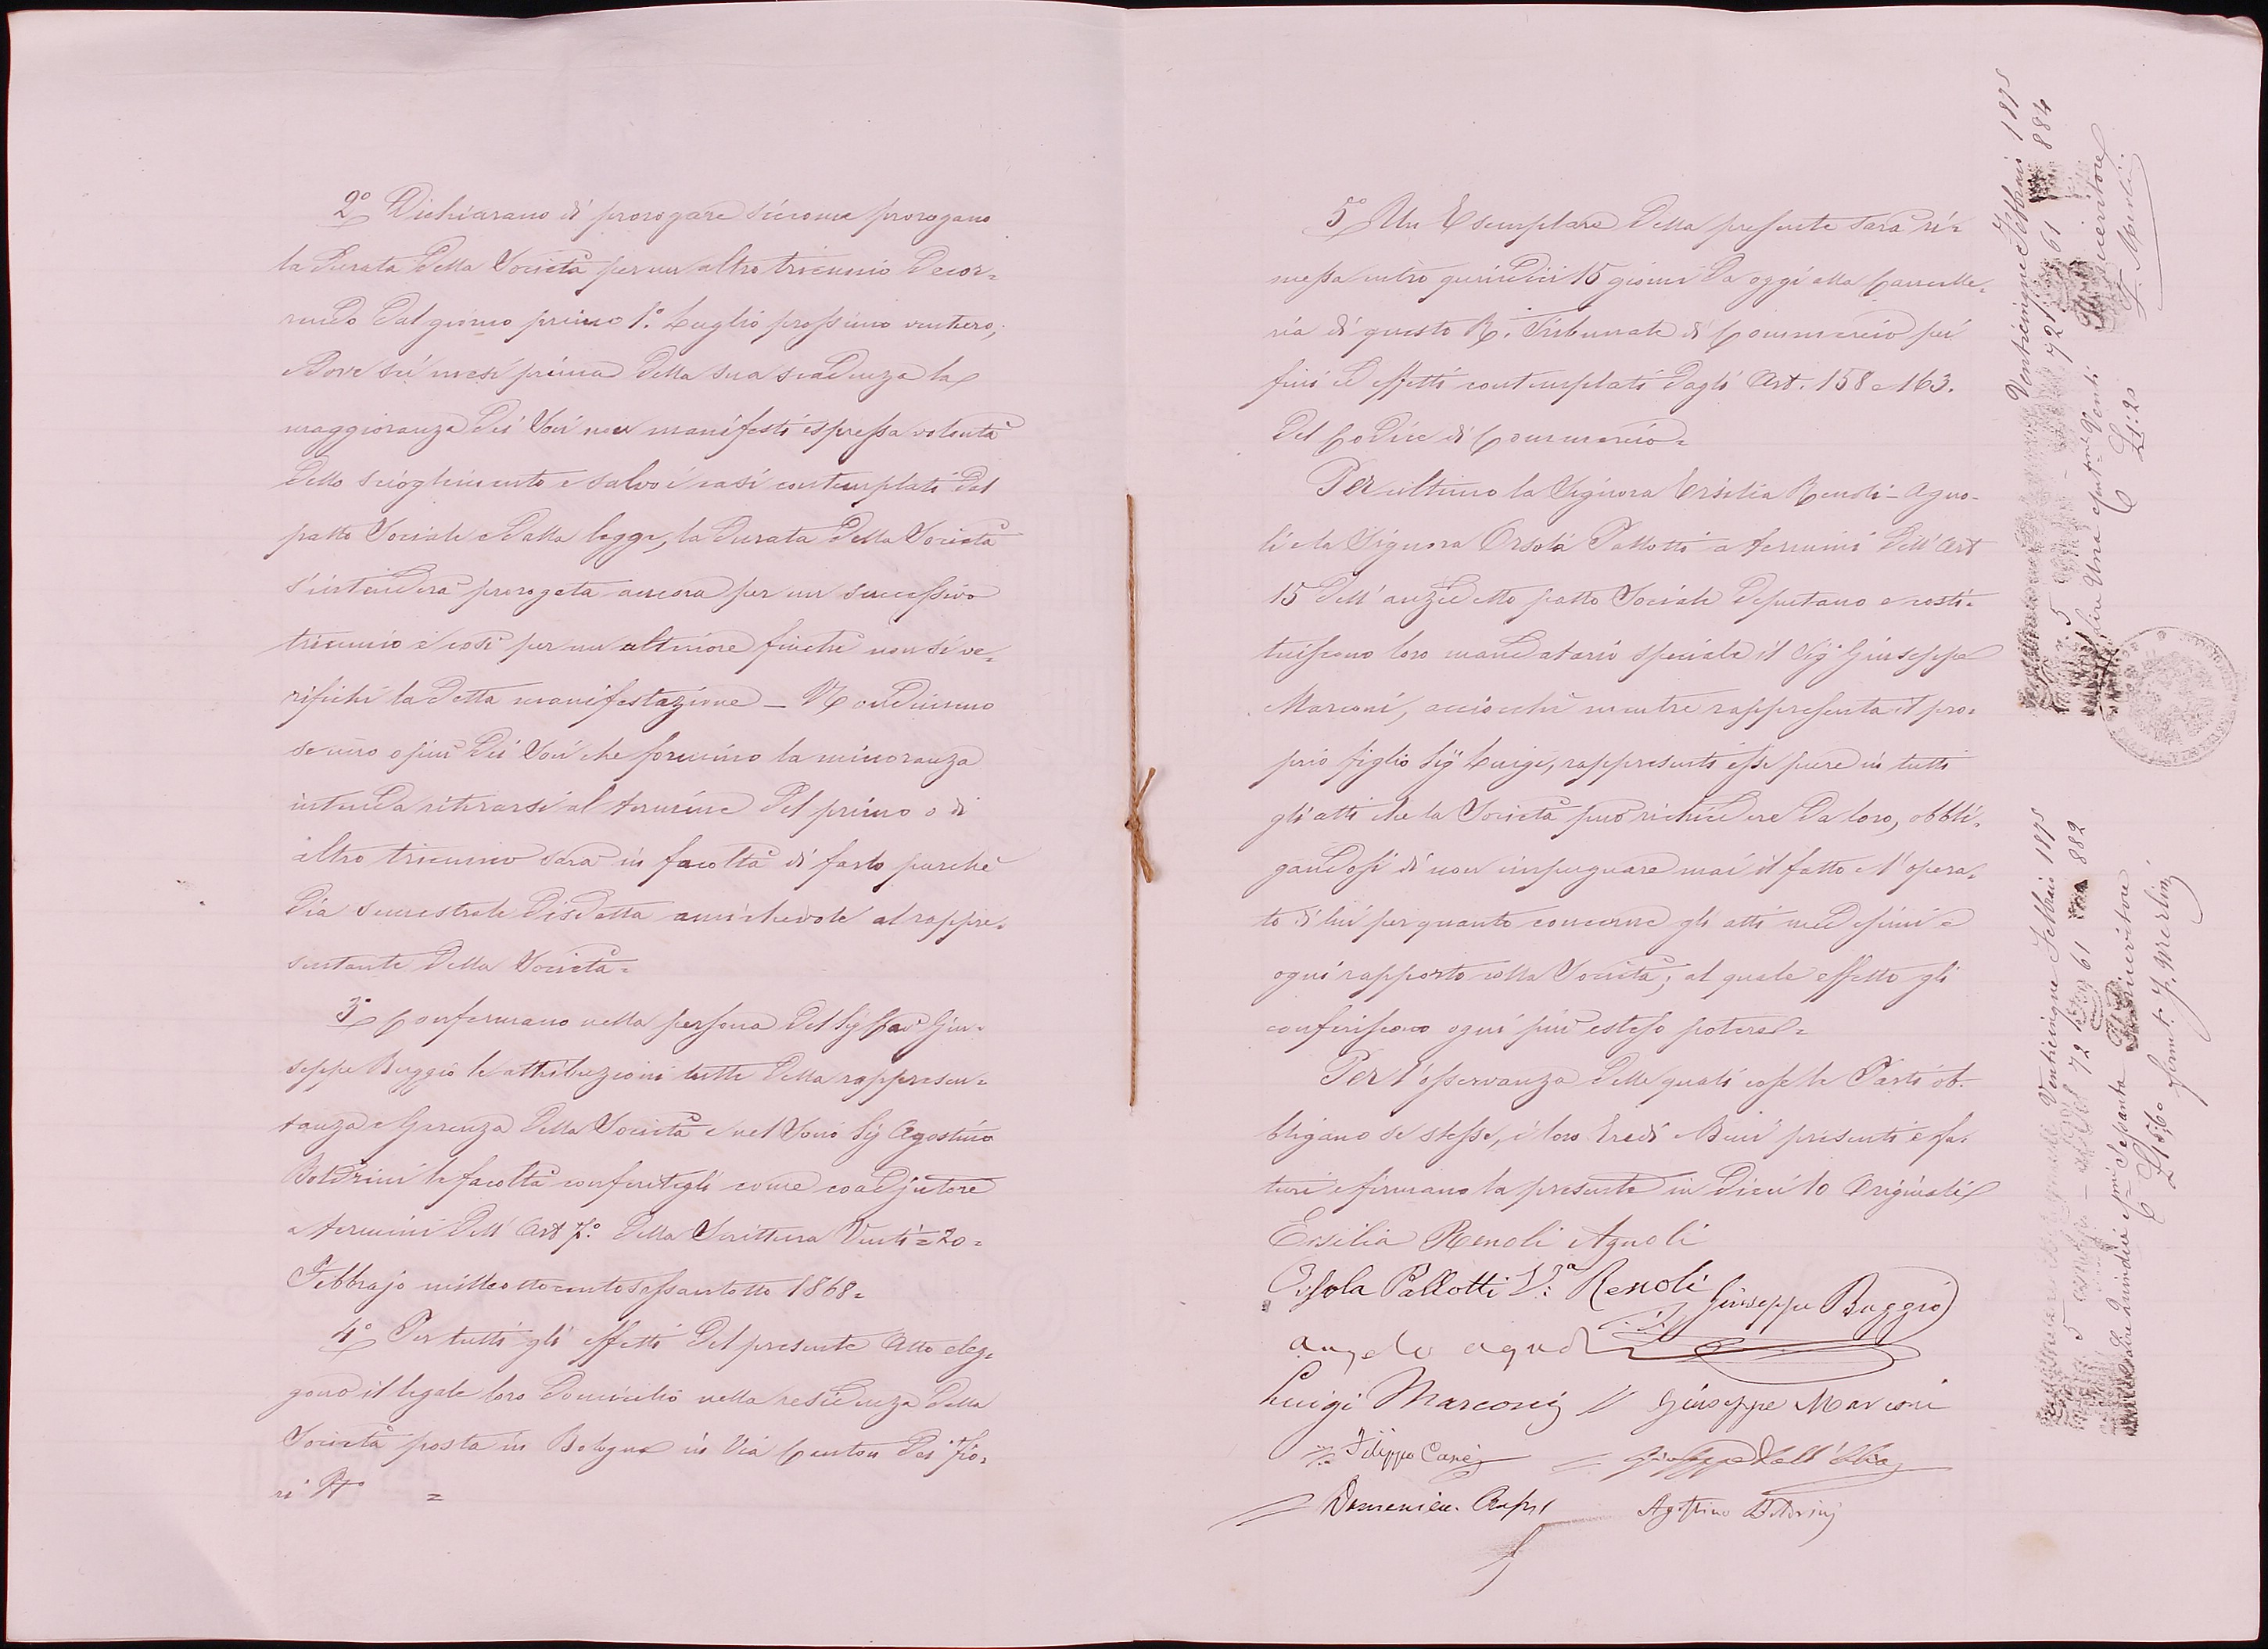 2° Dichiarano di prorogare siccome prorogano
la durata della Società per un altro triennio decor=
rendo dal giorno primo 1.° Luglio prossimo venturo;
e dove sei mesi prima della sua scadenza la
maggioranza dei Soci non manifesti espressa volontà
dello scioglimento e salvo i casi contemplati dal
patto Sociale e dalla legge, la durata della Società
s'intenderà prorogata ancora per un successivo
triennio e così per un ulteriore finchè non si ve=
rifichi la detta manifestazione — Nondimeno
se uno o più dei Soci che formino la minoranza
intenda ritirarsi al termine del primo o di
altro triennio sarà in facoltà di farlo purchè
dia semestrale disdetta amichevole al rappre=
sentante della Società=
3° Confermano nella persona del Sig Cav Giu=
seppe Buggio le attribuzioni tutte della rappresen=
tanza e Gerenza della Società e nel Socio Sig Agostino
Boldrini le facoltà conferitegli come coadjutore
a termini dell' Art 7.° della Scrittura Venti = 20 =
Febbrajo milleottocentosessantotto 1868=
4° Per tutti gli effetti del presente Atto eleg=
gono il legale loro domicilio nella residenza della
Società posta in Bologna in Via Canton dei Fio=
ri N° =
5° Un Esemplare della presente sarà ri=
messa entro quindici 15 giorni da oggi alla Cancelle=
ria di questo R. Tribunale di Commercio pei
fini ed effetti contemplati dagli Art. 158 e 163.
del Codice di Commercio=
Per ultimo la Signora Ersilia Renoli-Agno-
li e la Signora Orsola Pallotti a termini dell' Art
15 dell' anzidetto patto Sociale deputano e costi=
tuiscono loro mandatario speciale il Sig Giuseppe
Marconi, acciocchè mentre rappresenta il pro=
prio figlio Sig Luigi, rappresenti esse pure in tutti
gli atti che la Società può richiedere da loro, obbli=
gandosi di non impugnare mai il fatto e l'opera=
to di lui per quanto concerne gli atti medesimi e
ogni rapporto colla Società; al quale effetto gli
conferiscono ogni più esteso potere=
Per l'osservanza delle quali cose le Parti ob=
bligano se stesse, i loro Eredi e Beni presenti e fu=
turi e firmano la presente in dieci 10 Originali
Ersilia Renoli Agnoli
Orsola Pallotti V.a Renoli
Giuseppe Buggio
Angelo Agnoli
Luigi Marconi Giuseppe Marconi
Filippo Canè Giuseppe Dall'Olio
Agostino Boldrini
Venticinque Febbraio 1875
5 72 61 884
Lire Una e cmi Venti
L 1:20
Il Ricevitore
F. Merlin
Venticinque Febbraio 1875
5 72 61 882
Lire Quindici cmi Sessanta
L 15,60
Il Ricevitore
Firmat: F. Merlin